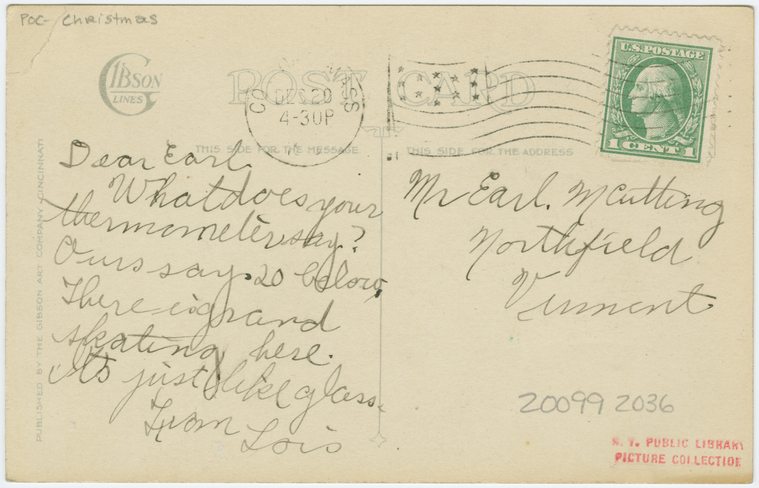 POC- Christmas
GIBSON
LINES
POST CARD
DEC 20
4-30P
U.S. POSTAGE
1 CENT 1
THIS SIDE FOR THE MESSAGE
THIS SIDE FOR THE ADDRESS
PUBLISHED BY THE GIBSON ART COMPANY, CINCINNATI
Dear Earl
What does your
thermometer say?
Ours say 20 below.
There is grand
skating here.
Its just like glass.
From
Lois
Mr Earl. McCutting
Northfield
Vermont
20099 2036
N. Y. PUBLIC LIBRARY
PICTURE COLLECTION